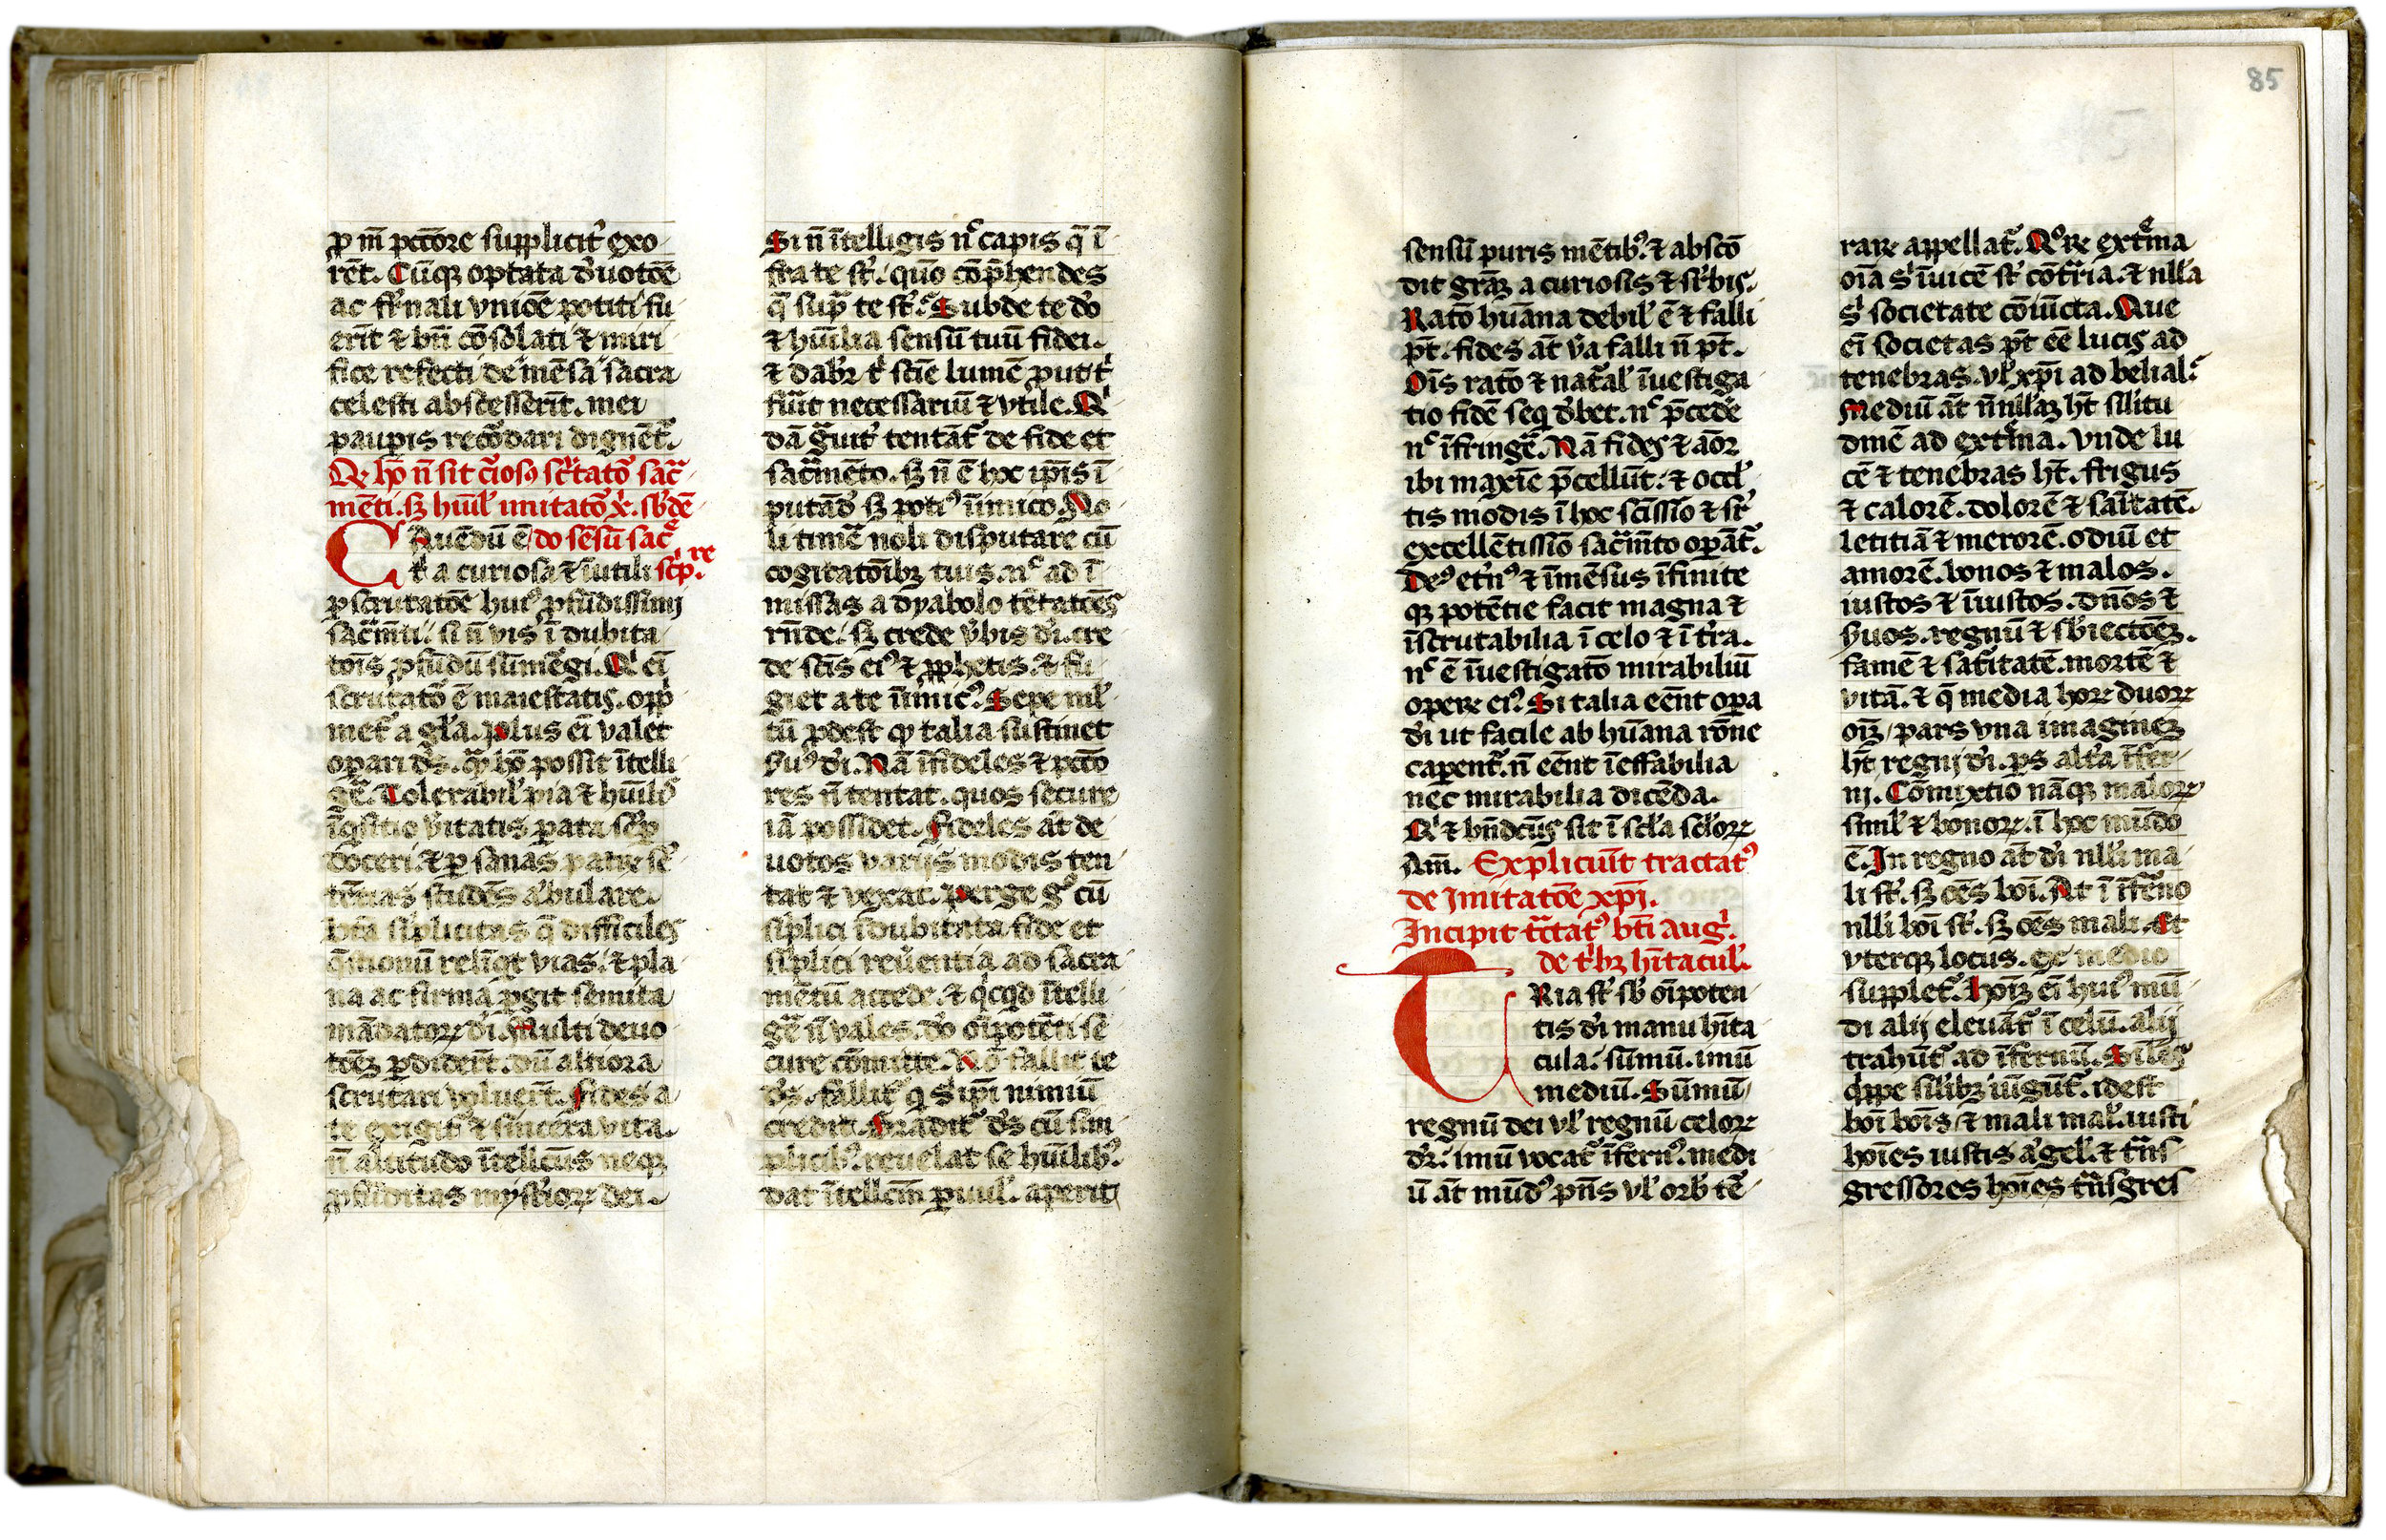 ꝓ m̄ pc̄c̄ore suppliciť exo
rēt. Cūqꝫ optata ď̓uotōē
ac fr̄nali vniōe potiti fu
erīt ⁊ bn̄ cōsolati ⁊ miri
fice refecti de mēsa sacra
celesti abscesserīt. mei
paupis recōdari dignēt᷑.
Q̓ hō n̄ sit c̓ios᷒ sc̓tatoꝰ sac̄
mēti. sꝫ hūil̓ imitatō x̄. sb̓dē
Cauēdū ē do sēsū sac̄
t̓ a curiosa ⁊ īutili sc̓p. re
ꝑscrutatōe huiꝰ ꝓfūdissimi
sac̄mti. si n̄ vis ī dubita
tōis ꝓfūdū sūmegi. Q̓ eī
scrutatō ē maiestatis. opp̄
met᷑ a gl̓a. plus eī valet
oꝑari d̓s. qꝫ hō possit ītelli
gē. Tolerabil̓ pia ⁊ hūil̓
īq̓sitio v̓itatis ꝑata sēꝑ
doceri. ⁊ ꝑ sanas patꝝ sē
tētias studēs ābulare.
bt̄a sīplicitas q̄ difficiles
q̄stionū relīqt vias. ⁊ pla
na ac firma ꝑgit semita
mādatoꝝ di. Multi deuo
tōeꝫ ꝑdiderūt. dū altiora
scrutari voluerīt. fides a
te exigit᷑ ⁊ sincera vita.
n̄ altitudo ītellectūs neqꝫ
ꝓfūditas mysťioꝝ dei.
Si n̄ ītelligis nͨ capis q̄ ī
fra te st̓. quō cōp̄hendes
q̄ sup̄ te st̓. Subde te d̓o
⁊ hūilia sensū tuū fidei.
⁊ dabr̓ t̓ scīe lumē ꝓut t̓
fūit necessariū ⁊ vtile. Q̓
dā g̓uiť tentāt᷑ de fide et
sac̄mēto. sꝫ n̄ ē hoc ip̄is ī
putād̓ sꝫ potiꝰ inīmico. No
li timē noli disputare cū
cogitatōibꝫ tuis. nͨ ad ī
missas a dyabolo tētatōēs
rn̄de. sꝫ crede v̓bis di. cre
de scīs eiꝰ ⁊ ꝓphetis. ⁊ fu
giet a te inimicꝰ. Sepe ml̓
tū ꝓdest qꝫ talia sustinet
suꝰ di. Nā īfideles ⁊ pctō
res n̄ tentat. quos secure
iā possidet. fideles āt de
uotos varijs modis ten
tat ⁊ vexat. Perge gͦ cū
sīplici īdubitata fide et
sīplici reuētia ad sacra
mētū accede. ⁊ q̓cqd ītelli
gē n̄ vales. d̓o oīpotēti se
cure cōmitte. Nō fallit te
d̓s. fallit᷑ q sͥ ip̄i nimiū
credit. Gradit᷑ d̓s cū sim
plicibꝰ. reuelat se hūilibꝰ.
dat ītellcm̄ ꝑuul̓. aperit
sensū puris mētibꝰ. ⁊ abscō
dit grāꝫ a curiosis ⁊ suꝑbis.
Ratō hūana debil̓ ē ⁊ falli
pt̄. fides āt v̓a falli n̄ pt̄.
Oīs ratō ⁊ nat̄al̓ īuestiga
tio fidē seq̓ d̓bet. nͨ p̄cedē
nͨ īfringē. Nā fides ⁊ amor
ibi maxīe p̄cellūt. ⁊ occl̓
tis modis ī hoc scīssīo ⁊ sr̓
excellētissīo sac̄mto oꝑāt᷑.
Deꝰ et̓nꝰ ⁊ īmēsus īfinite
qꝫ potētie facit magna ⁊
īscrutabilia ī celo ⁊ ī t̓ra.
nͨ ē īuestigatō mirabiliū
oꝑeꝝ eiꝰ. Si talia eēnt oꝑa
di ut facile ab hūana rōne
caꝑent᷑. n̄ eēnt īeffabilia
nec mirabilia dicēda.
Q̓ ⁊ bn̄dcus sit ī scl̓a scl̓oꝝ
Am̄. Expliciūt tractatꝰ
de Imitatōe xp̄i.
Incipit tc̄tatꝰ bt̄i Augͥ.
de t̓bꝫ hītacul̓.
Tria st̓ sb̓ oīpoten
tis di manu hīta
cula. sūmū. imū
mediū. Sūmū
regnū dei vl̓ regnū celoꝝ
dr̓. imū vocat᷑ īfernꝰ. medi
ū āt mūdꝰ p̄ns vl̓ orb̓ tē
raꝝ appellat᷑. Qoꝝ extͤma
oīa sͥ īuicē st̓ cōtͣria. ⁊ nll̓a
sͥ societate cōiūcta. Que
eī societas pt̄ eē lucis ad
tenebras. vl̓ xp̄i ad belial.
Mediū āt nōnllaꝫ ht̄ sīlitu
dinē ad extͤma. vnde lu
cē ⁊ tenebras ht̄. frigus
⁊ calorē. dolorē ⁊ sāitatē.
letitiā ⁊ merorē. odiū et
amorē. bonos ⁊ malos.
iustos ⁊ īiustos. dn̄os ⁊
suos. regnū ⁊ sb̓iectōeꝫ.
famē ⁊ saťitatē. mortē ⁊
vitā. ⁊ q̄ media hoꝝ duoꝝ
oīꝫ pars vna imagineꝫ
ht̄ regni di. ꝑs alt̓a īfer
ni. Cōmixtio nāqꝫ maloꝝ
simil̓ ⁊ bonoꝝ. ī hoc mūdo
ē. In regno āt di nll̓i ma
li st̓. sꝫ oēs boi. At ī īferno
nlli boi st̓. sꝫ oēs mali. Et
vterqꝫ locus. ex medio
supplet᷑. hoīꝫ eī huiꝰ mū
di alij eleuāt᷑ ī celū. alij
trahūt᷑ ad īfernū. Siles
q̓ppe silibꝫ iūgūt᷑. idest
boi bois. ⁊ mali mal̓. iusti
hoīes iustis āgel̓. ⁊ tn̄s
gressores hoīes tn̄sgres
85